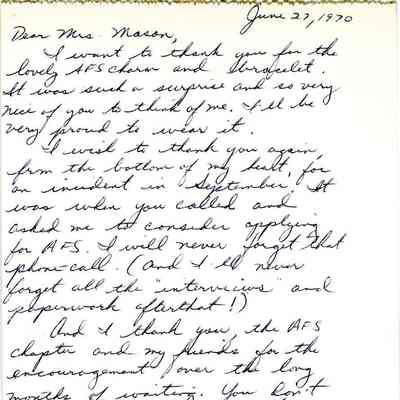 June 27, 1970
Dear Mrs. Mason,
I want to thank you for the
lovely AFS charm and bracelet.
It was such a surprise and so very
nice of you to think of me. I'll be
very proud to wear it.
I wish to thank you again,
from the bottom of my heart, for
an incident in September. It
was when you called and
asked me to consider applying
for AFS. I will never forget that
phone-call. (And I'll never
forget all the "interviews" and
paperwork after that!)
And I thank you, the AFS
chapter and my friends for the
encouragement over the long
months of waiting. You don't